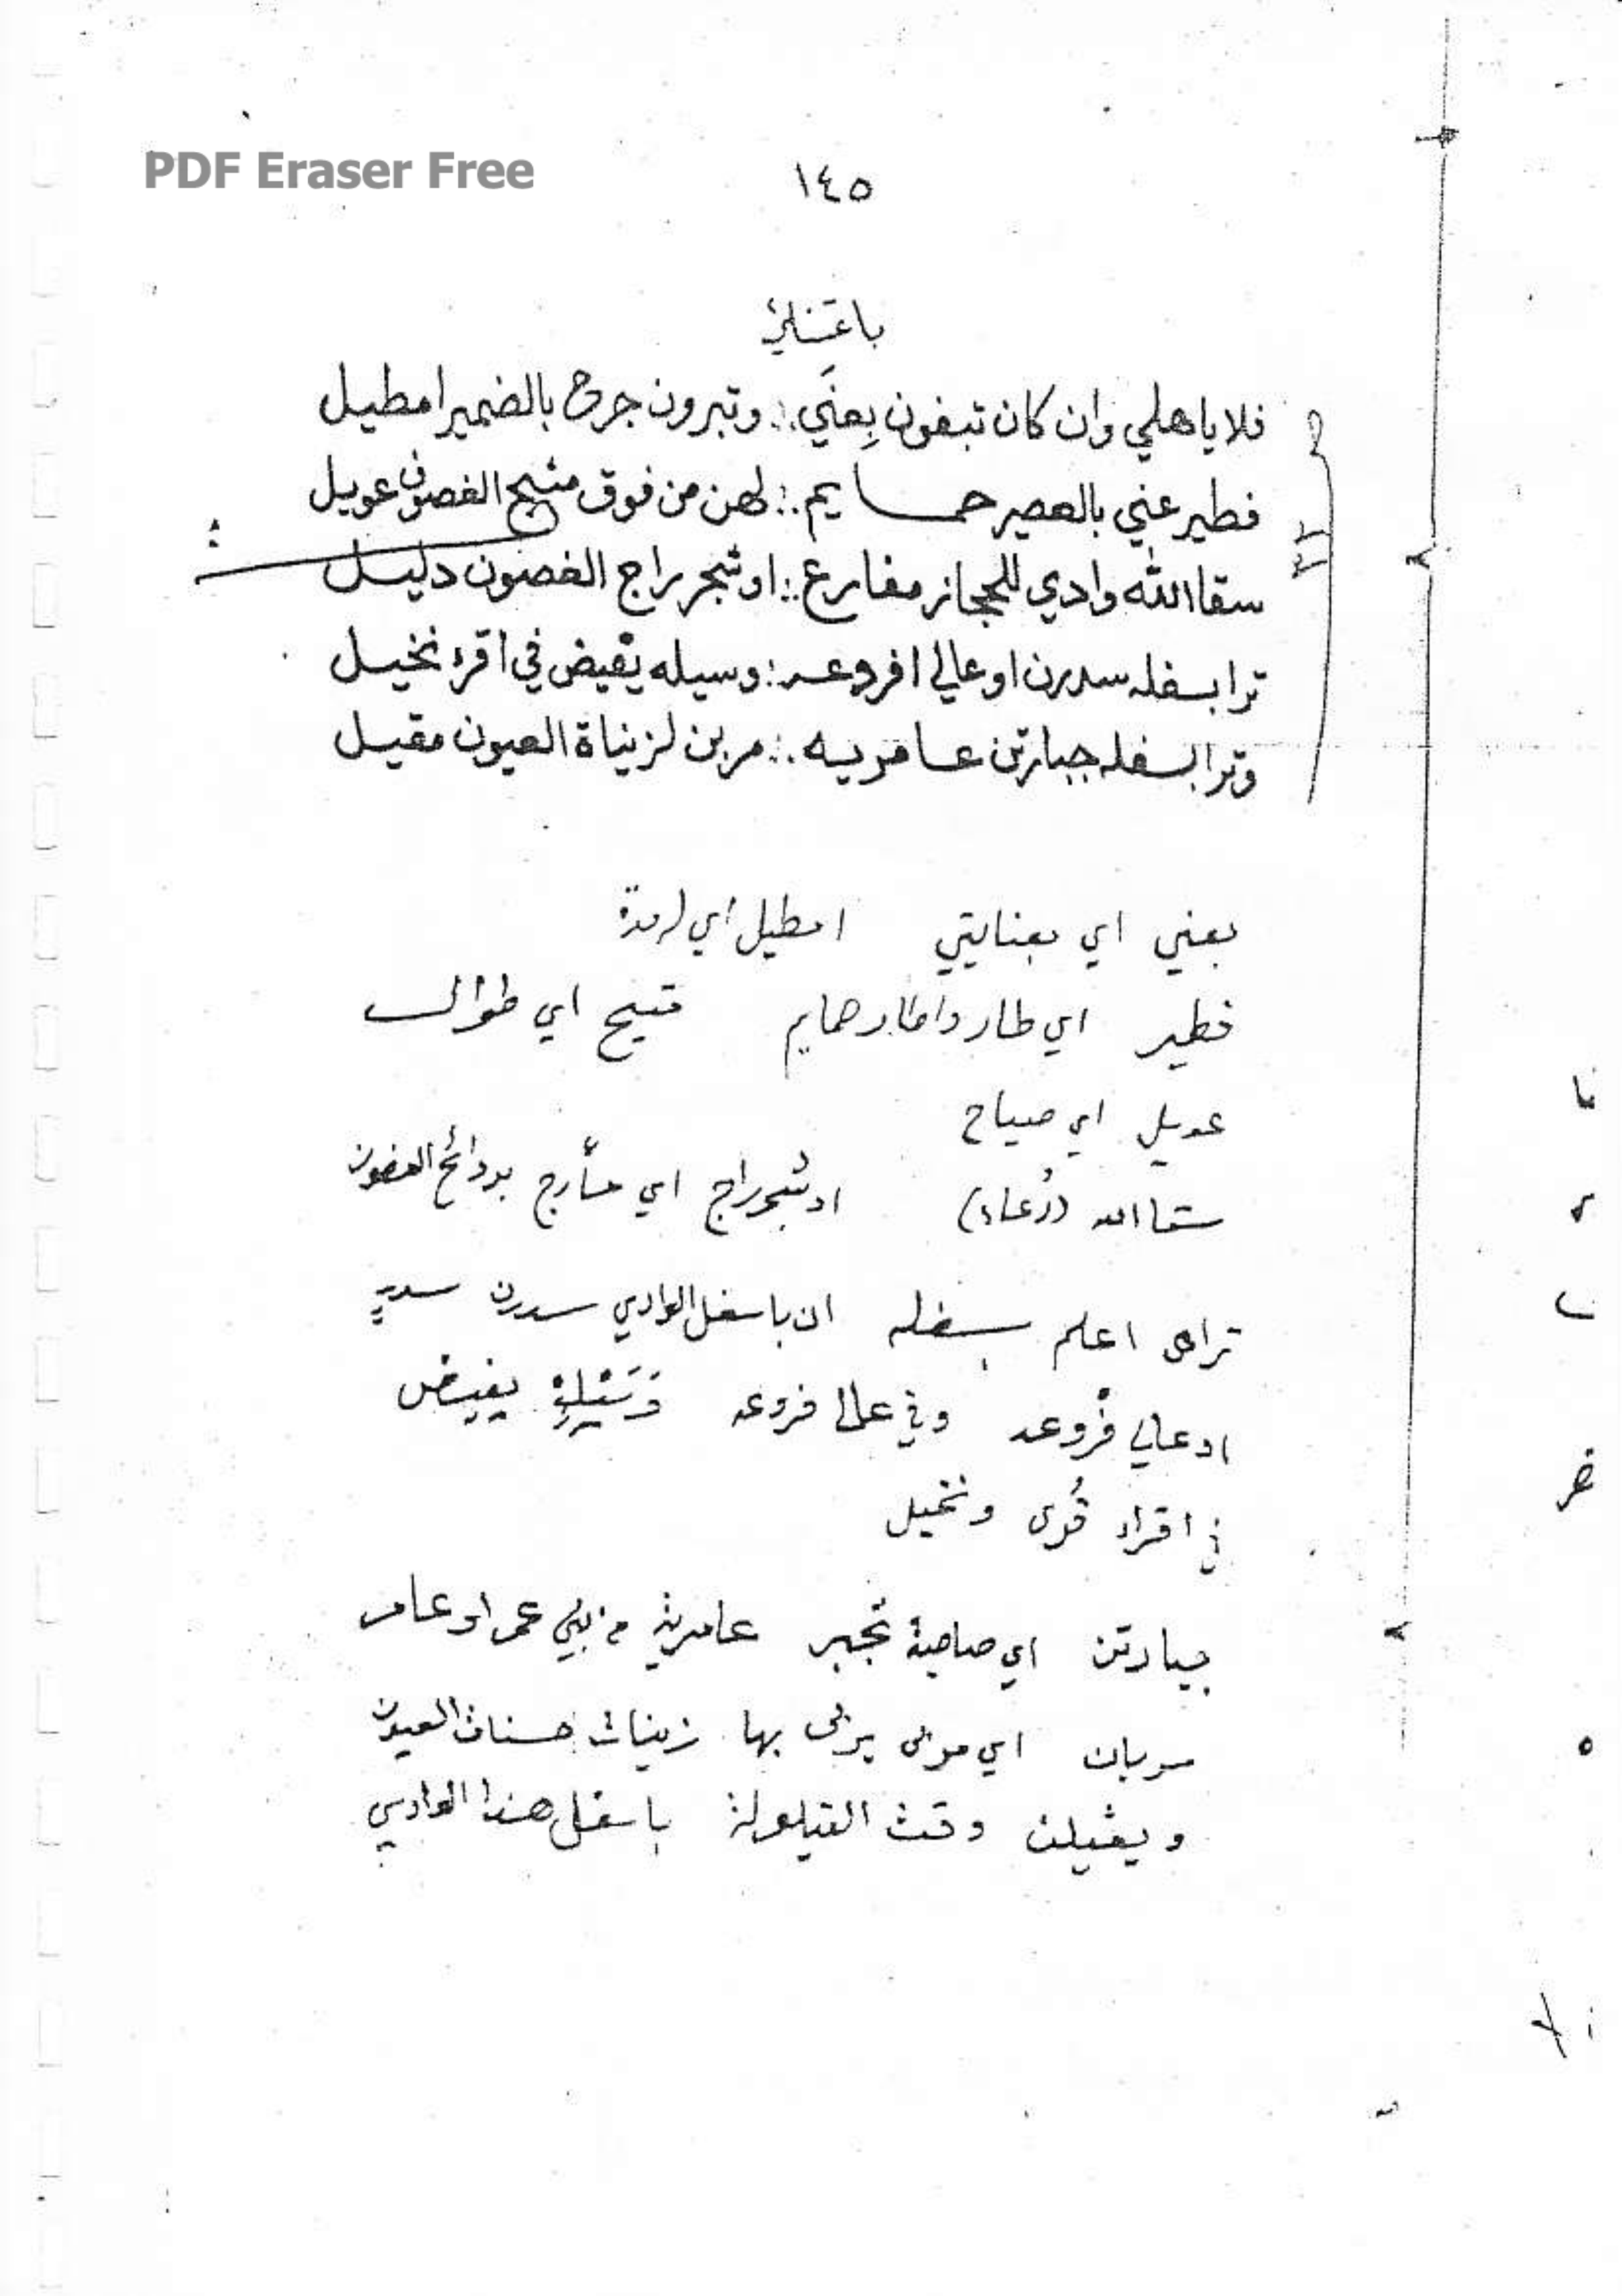 PDF Eraser Free
١٤٥
فلا ياهلي وان كان تبغون بِعنَي .:. وتبرون جرح بالضمير امطيل
فطير عني بالعصير حمايم .:. لهن من فوق متيح الغصون عويل
سقا الله وادي للحجاز مفارع .:. اوشجر براج الغصون دليل
ترا بسفله سدرن اوعالي افروعه .:. وسيله يفيض في اقرء نخيل
وترا بسفله جبارتن عامريه .:. مربن لزيناة العيون مقيل
بعني اي بعنايتي امطيل اي له مدة
فطير اي طار واطار حمايم متيح اي طوال
عويل اي صياح
سقا الله (دُعاء) اوشجر براج اي متأرج بروائح الغصون
ترا اعلم بسفله ان باسفل الوادي سدرن سدر
اوعالي فروعه وفي عالي فروعه وَسَيْلِهْ يفيض
في اقراء قُرى ونخيل
جبارتن اي صاحبة تجبر عامرية من بني عمر او عامر
مربان اي مربى يربى بها زينات حسنات العيون
ويقيلن وقت القيلولة باسفل هذا الوادي